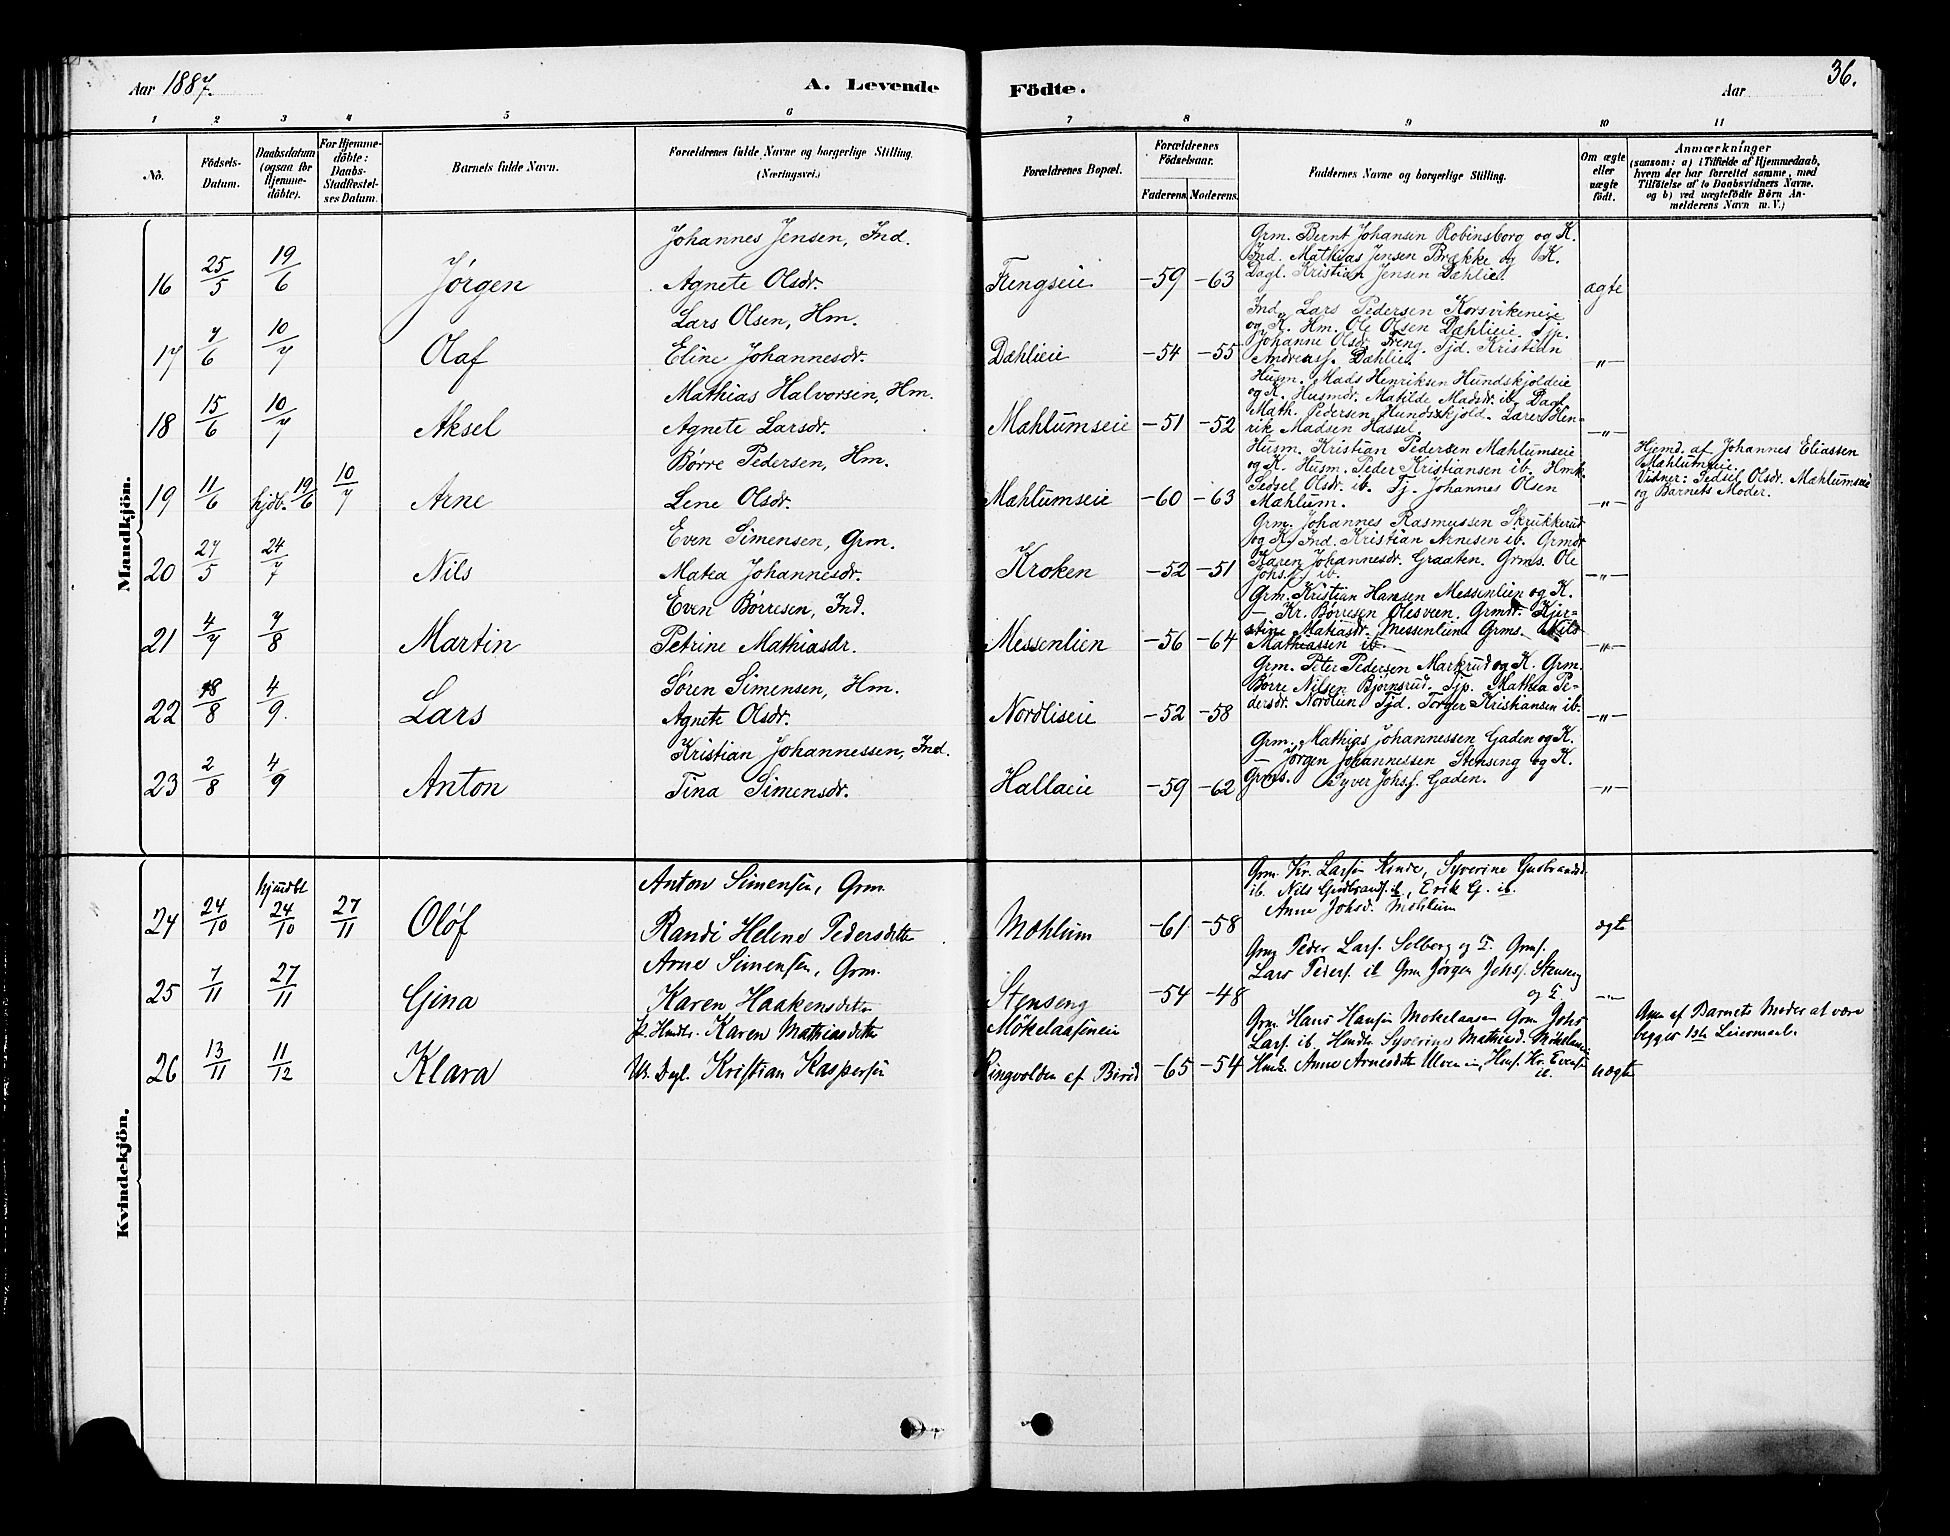 Aar 1887.
A. Levende
Födte.
Aar
36.
1 2 3 4 5 6 7 8 9 10 11
No.
Födsels-
Datum.
Daabsdatum
(ogsaa för
Hjemme-
döbte).
For Hjemme-
döbte:
Daabs-
Stadfæstel-
ses Datum.
Barnets fulde Navn.
Forældrenes fulde Navne og borgerlige Stilling.
(Næringsvei.)
Forældrenes Bopæl.
Forældrenes
Födselsaar.
Faderens. Moderens.
Faddernes Navne og borgerlige Stilling.
Om ægte
eller
uægte
født.
Anmærkninger
(saasom: a) i Tilfælde af Hjemmedaab,
hvem der har forrettet samme, med
Tilföielse af to Daabsvidners Navne.
og b) ved uægtefödte Börn An-
melderens Navn m. V.)
Mandkjön.
16 25/5 19/6 Jørgen
Johannes Jensen, Ind.
Agnete Olsdr.
Frengseie -59 -63
Grm. Bernt Johansen Robinsborg og K.
Ind. Mathias Jensen Brække og K.
Dagl. Kristian Jensen Dæhlie.
ægte
17 7/6 10/7 Olaf
Lars Olsen, Hm.
Eline Johannesdr.
Dæhlieie -54 -55
Ind. Lars Pedersen Korsvikeneie
og K. Hm. Ole Olsen Dæhlieie. Tjp.
Johanne Olsdr. Freng. Tjd. Kristian
Andreasf. Dæhlie.
-"-
18 15/6 10/7 Aksel
Mathias Halvorsen, Hm.
Agnete Larsdr.
Mæhlumseie -51 -52
Husm. Mads Henriksen Hundskjoldeie
og K. Husmdr. Matilde Madsdr. ib. Dagl.
Math. Pedersen Hundskjold. Lærer Hen-
rik Madsen Hassel.
-"-
19 11/6 hjdb. 19/6 10/7 Arne
Børre Pedersen, Hm.
Lene Olsdr.
Mæhlumseie -60 -63
Husm. Kristian Pedersen Mæhlumseie
og K. Husm. Peder Kristiansen ib. Hmk.
Sedsel Olsdr. ib. Tj. Johannes Olsen
Mæhlum.
-"-
Hjemd. af Johannes Eliassen
Mæhlumseie.
Vidner: Sedsel Olsdr. Mæhlumseie
og Barnets Moder.
20 27/5 24/7 Nils
Even Simensen, Grm.
Matea Johannesdr.
Kroken -52 -51
Grm. Johannes Rasmussen Skrukkerud
og K. Ind. Kristian Arnesen ib. Grmdr.
Karen Johannesdr. Graaten. Grms. Ole
Johsf. ib.
-"-
21 4/7 7/8 Martin
Even Børresen, Ind.
Petrine Mathiasdr.
Messenlien -56 -64
Grm. Kristian Hansen Messenlien og K.
— Kr. Børresen Olesveen. Grmdr. Kjer-
stine Matiasdr. Messenlien Grms. Nils
Mathiassen ib.
-"-
22 8/8 4/9. Lars
Søren Simensen, Hm.
Agnete Olsdr.
Nordlieie -52 -58
Grm. Peter Pedersen Markrud og K. Grm.
Børre Nilsen Bjørnsrud. Tjp. Mathea Pe-
dersdr. Nordlien Tjd. Torger Kristiansen ib.
-"-
23 2/8 4/9 Anton
Kristian Johannessen, Ind.
Tina Simensdr.
Hallaeie -59 -62
Grm. Mathias Johannessen Gaden og K.
— Jørgen Johannessen Stenseng og K.
Grms. Syver Johsf. Gaden.
-"-
Kvindekjön.
24 24/10 hjmdbt 24/10 27/11 Oløf
Anton Simensen, Grm.
Randi Helene Pedersdatter
Mæhlum -61 -58
Grm. Kr. Larsen Kinde, Syverine Gudbrandsd.
ib. Nils Gudbrandsf. ib, Erik G. ib.
Anne Johsd. Mæhlum
ægte
25 7/11 27/11 Gina
Arne Simensen, Grm.
Karen Haakensdatter
Stenseng -54 -48
Grm Peder Larsf. Solberg og K. Grmf.
Lars Pedersf. ib Grm Jørgen Johsf. Stenseng
og K
-"-
26 13/11 11/12 Klara
Karen Mathiasdatter
Kristian Kaspersen
Mökelaaseneie
Ringvolden af Birid -65 -54
Grm. Hans Hansen Mökelaasen Grm Johs
Larsf. ib.
Anne Arnesdatter
uægte
Anm af Barnets Moder at være
begges 1ste Leiermaal.